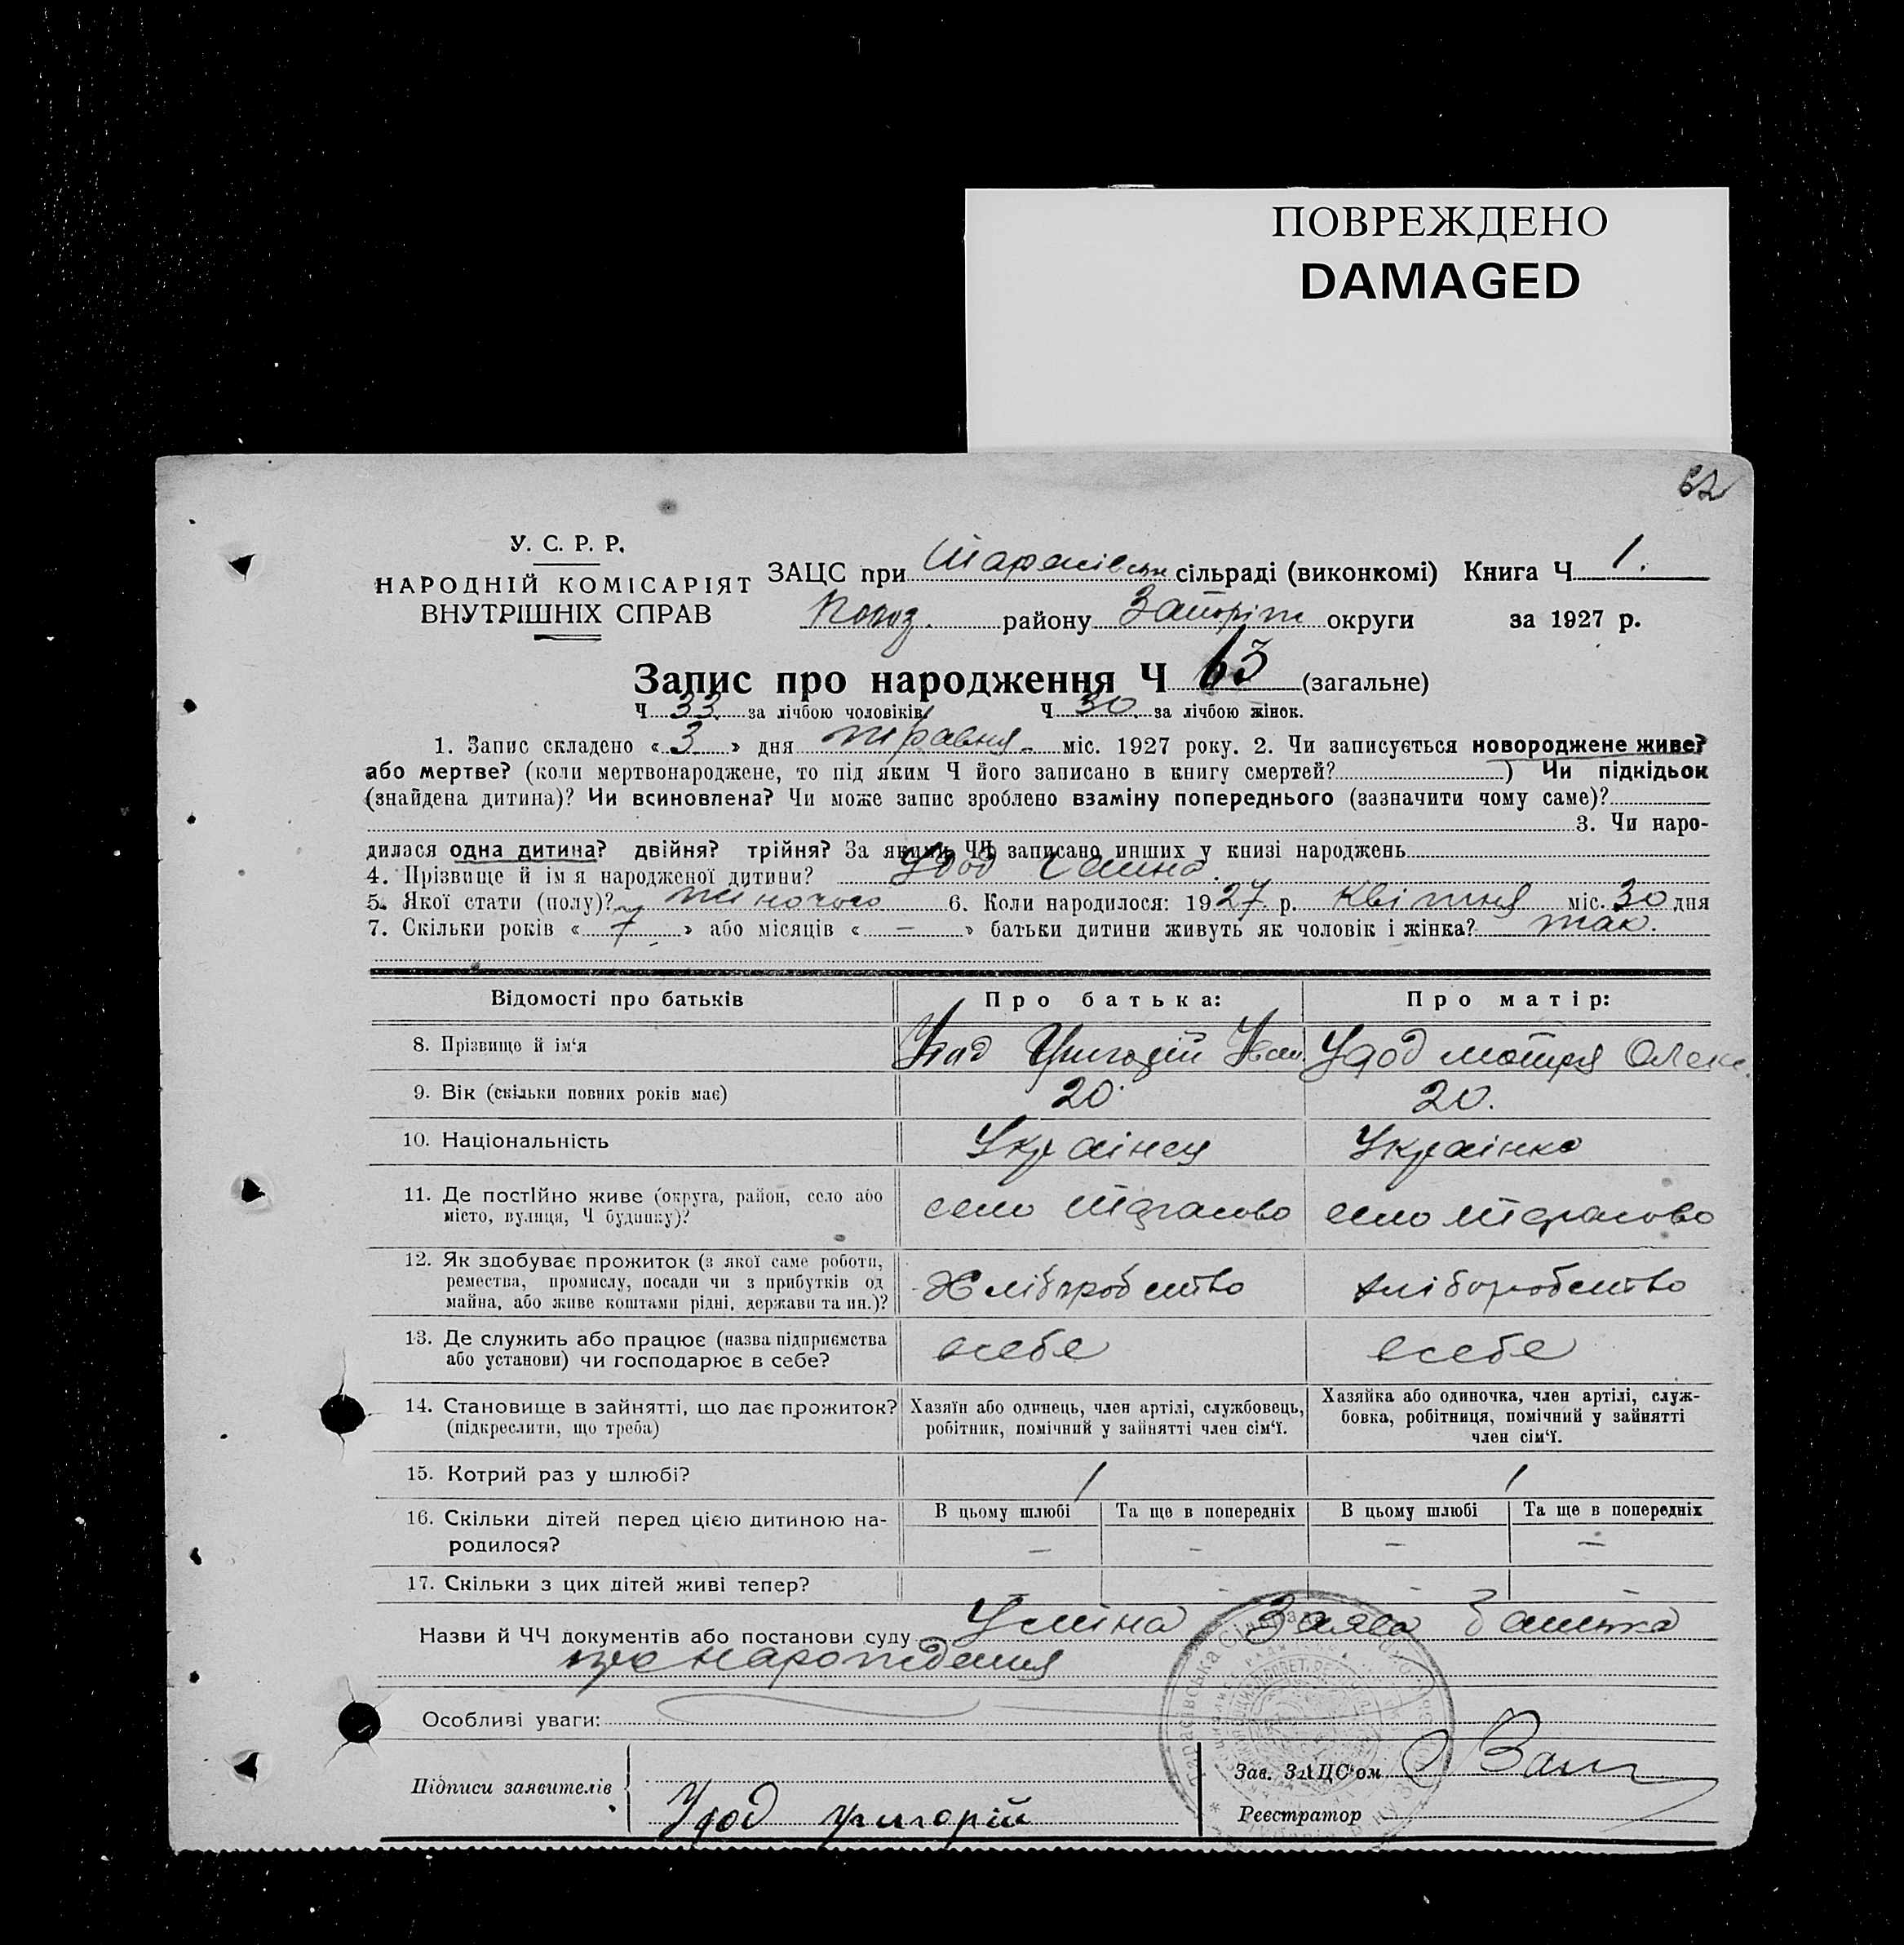 ПОВРЕЖДЕНО
DAMAGED
62
У. С. Р. Р.
НАРОДНІЙ КОМІСАРІЯТ
ВНУТРІШНІХ СПРАВ
ЗАЦС при Тарасівськ сільраді (виконкомі) Книга Ч 1.
Полог. району Запоріж округи за 1927 р.
Запис про народження Ч 63 (загальне)
Ч 33 за лічбою чоловіків. Ч 30. за лічбою жінок.
1. Запис складено « 3 » дня травня міс. 1927 року. 2. Чи записується новороджене живе?
або мертве? (коли мертвонароджене, то під яким Ч його записано в книгу смертей? ) Чи підкідьок
(знайдена дитина)? Чи всиновлена? Чи може запис зроблено взаміну попереднього (зазначити чому саме)?
3. Чи наро-
дилася одна дитина? двійня? трійня? За якими ЧЧ записано инших у книзі народжень
4. Прізвище й ім'я народженої дитини? Удод Ганна.
5. Якої стати (полу)? жіночого 6. Коли народилося: 1927 р. квітня міс. 30 дня
7. Скільки років « 7 » або місяців « — » батьки дитини живуть як чоловік і жінка? так.
Відомості про батьків Про батька: Про матір:
8. Прізвище й ім'я Удод Григорій Іван Удод Мотря Олекс.
9. Вік (скільки повних років має) 20 20.
10. Національність Українец Українка
11. Де постійно живе (округа, район, село або
місто, вулиця, Ч будинку)? село Тарасово село Тарасово
12. Як здобуває прожиток (з якої саме роботи,
ремества, промислу, посади чи з прибутків од
майна, або живе коштами рідні, держави та ин.)? Хліборобство хліборобство
13. Де служить або працює (назва підприємства
або установи) чи господарює в себе? всебе всебе
14. Становище в зайнятті, що дає прожиток?
(підкреслити, що треба)
Хазяїн або одинець, член артілі, службовець,
робітник, помічний у зайнятті член сім'ї.
Хазяйка або одиночка, член артілі, служ-
бовка, робітниця, помічний у зайнятті
член сім'ї.
15. Котрий раз у шлюбі? 1 1
16. Скільки дітей перед цією дитиною на-
родилося?
В цьому шлюбі Та ще в попередніх В цьому шлюбі Та ще в попередніх
— — — —
17. Скільки з цих дітей живі тепер?
Назви й ЧЧ документів або постанови суду Усніна Заява батька
про нарождения
Особливі уваги:
Підписи заявителів Удод Григорій
Зав. ЗАЦС'ом
Реєстратор